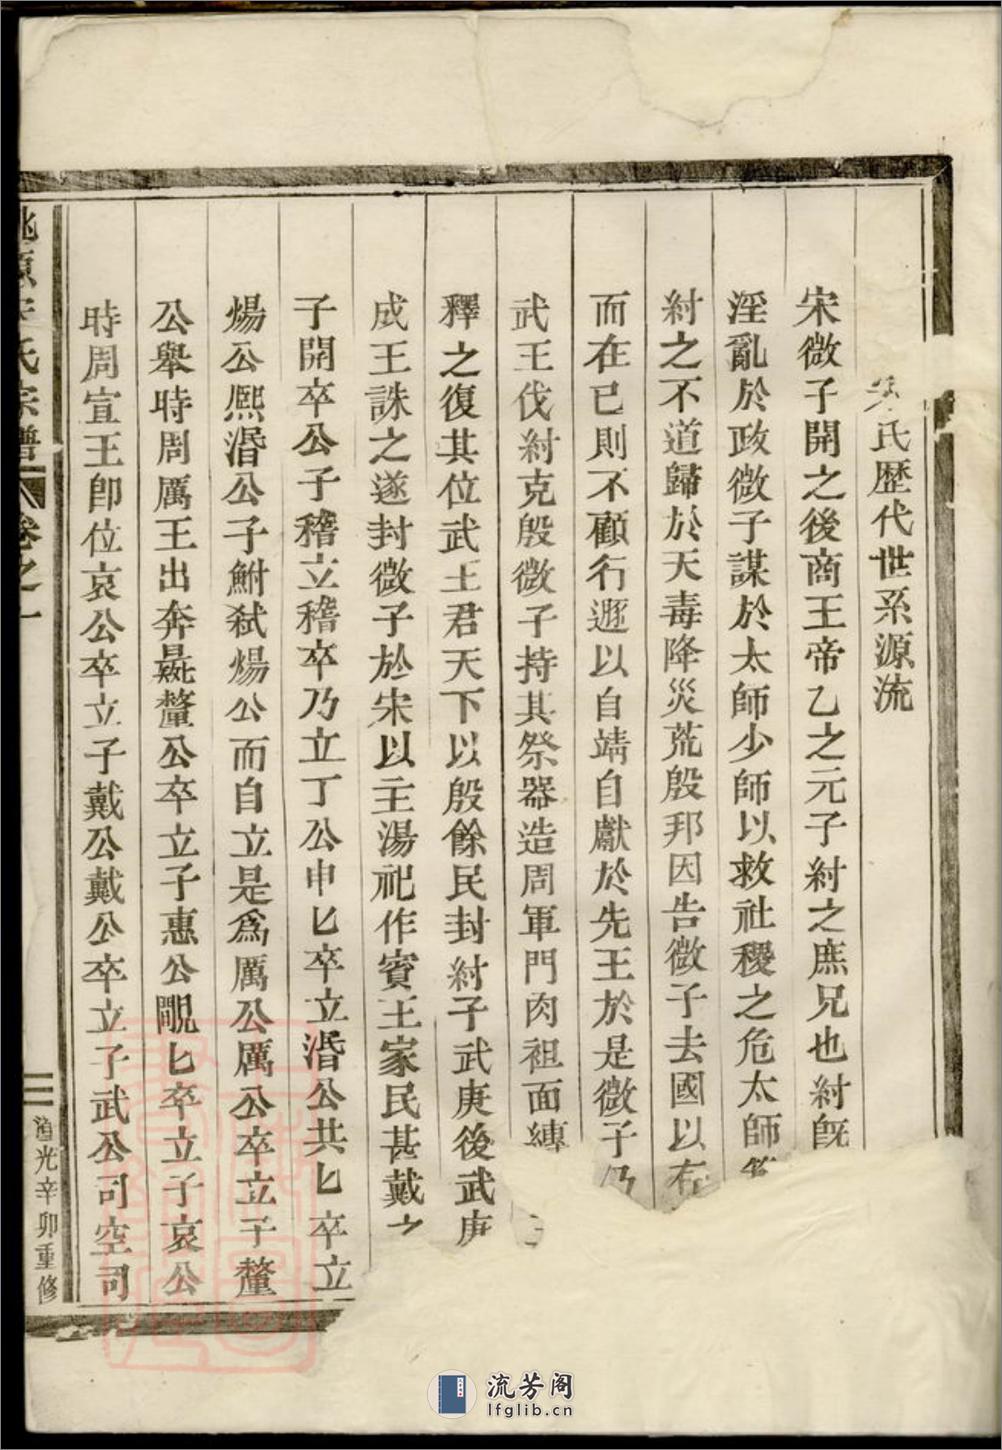 宋氏歷代世系源流
宋微子開之後商王帝乙之元子紂之庶兄也紂旣
淫亂於政微子謀於太師少師以救社稷之危太師
紂之不道歸於天毒降災荒殷邦因告微子去國以存
而在已則不顧行遯以自靖自獻於先王於是微子乃
武王伐紂克殷微子持其祭器造周軍門肉袒面縛
釋之復其位武王君天下以殷餘民封紂子武庚後武庚
成王誅之遂封微子於宋以主湯祀作賓王家民甚戴之
子開卒公子稽立稽卒乃立丁公申匕卒立湣公共匕卒立
煬公熙湣公子鮒弒煬公而自立是爲厲公厲公卒立子釐
公舉時周厲王出奔彘釐公卒立子惠公覵匕卒立子哀公
時周宣王卽位哀公卒立子戴公戴公卒立子武公司空司
氏宗譜 卷之一
光辛卯重修
流芳阁
lfglib.cn